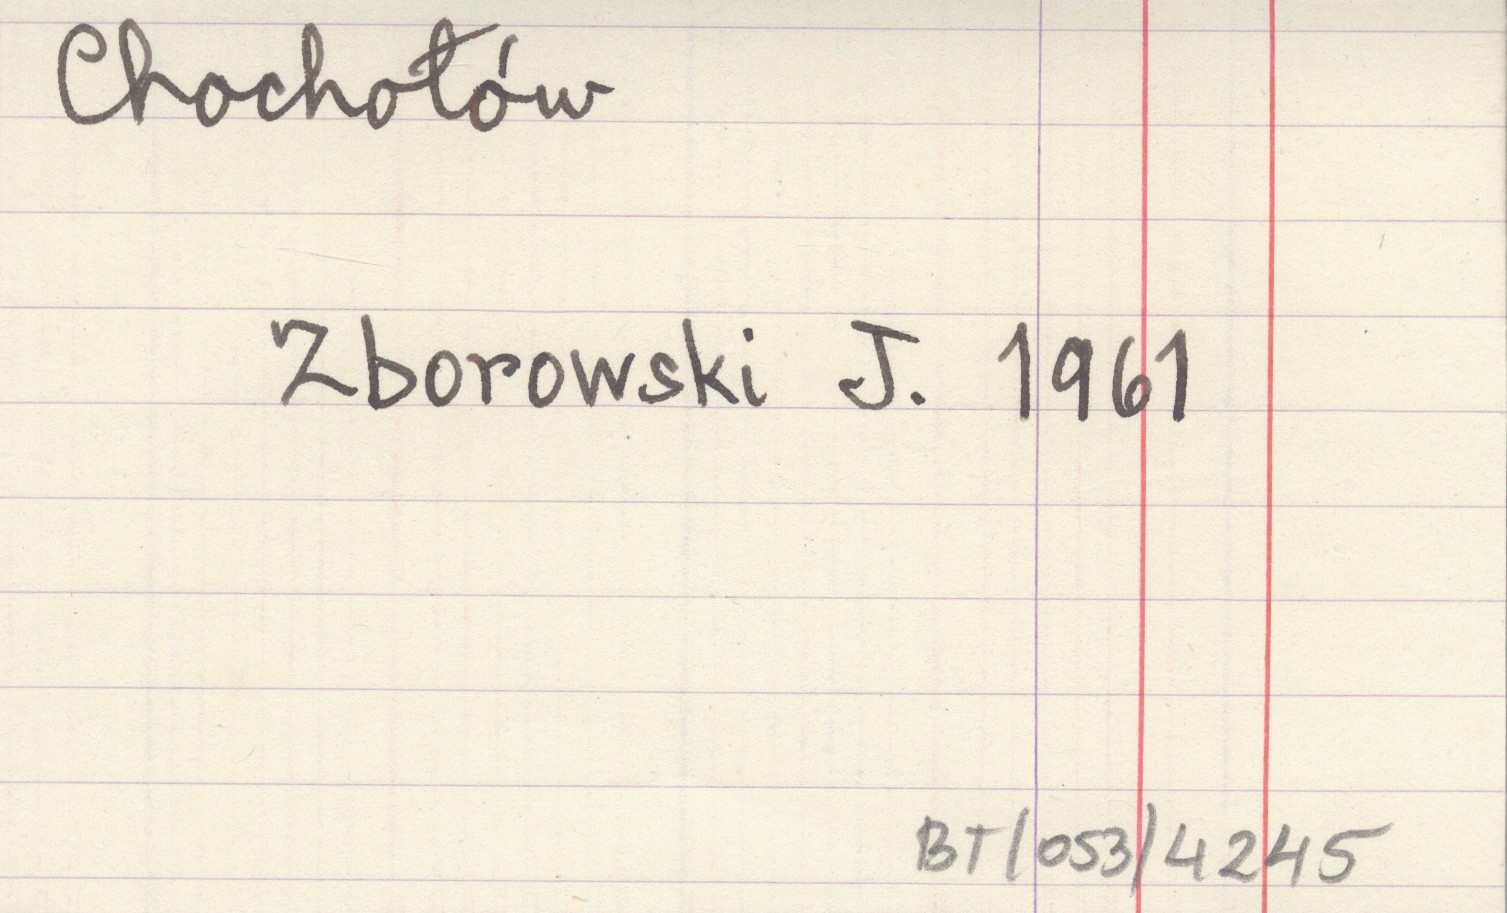 Chochołów
Zborowski J. 1961
BT/053/4245